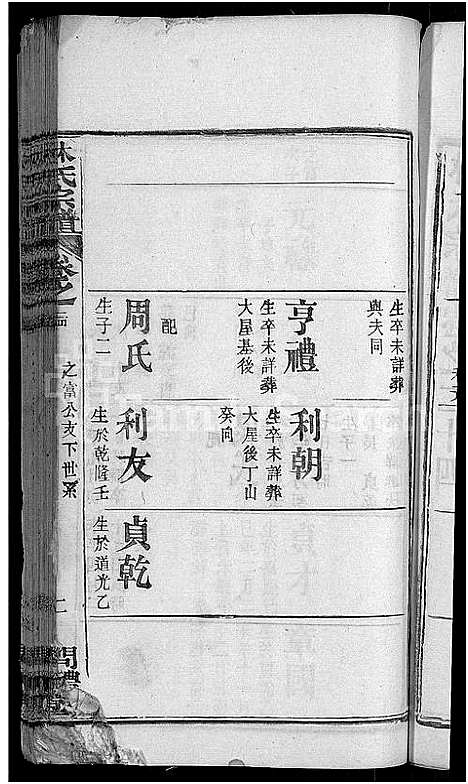 生卒未詳葬
與夫同
亨禮
生卒未詳葬
大屋基後
配
周氏
生子二
利朝
生卒未詳葬
大屋後丁山
癸向
利友
生於乾隆壬
貞乾
生於道光乙
林氏宗譜
卷之一
之富公支下世系